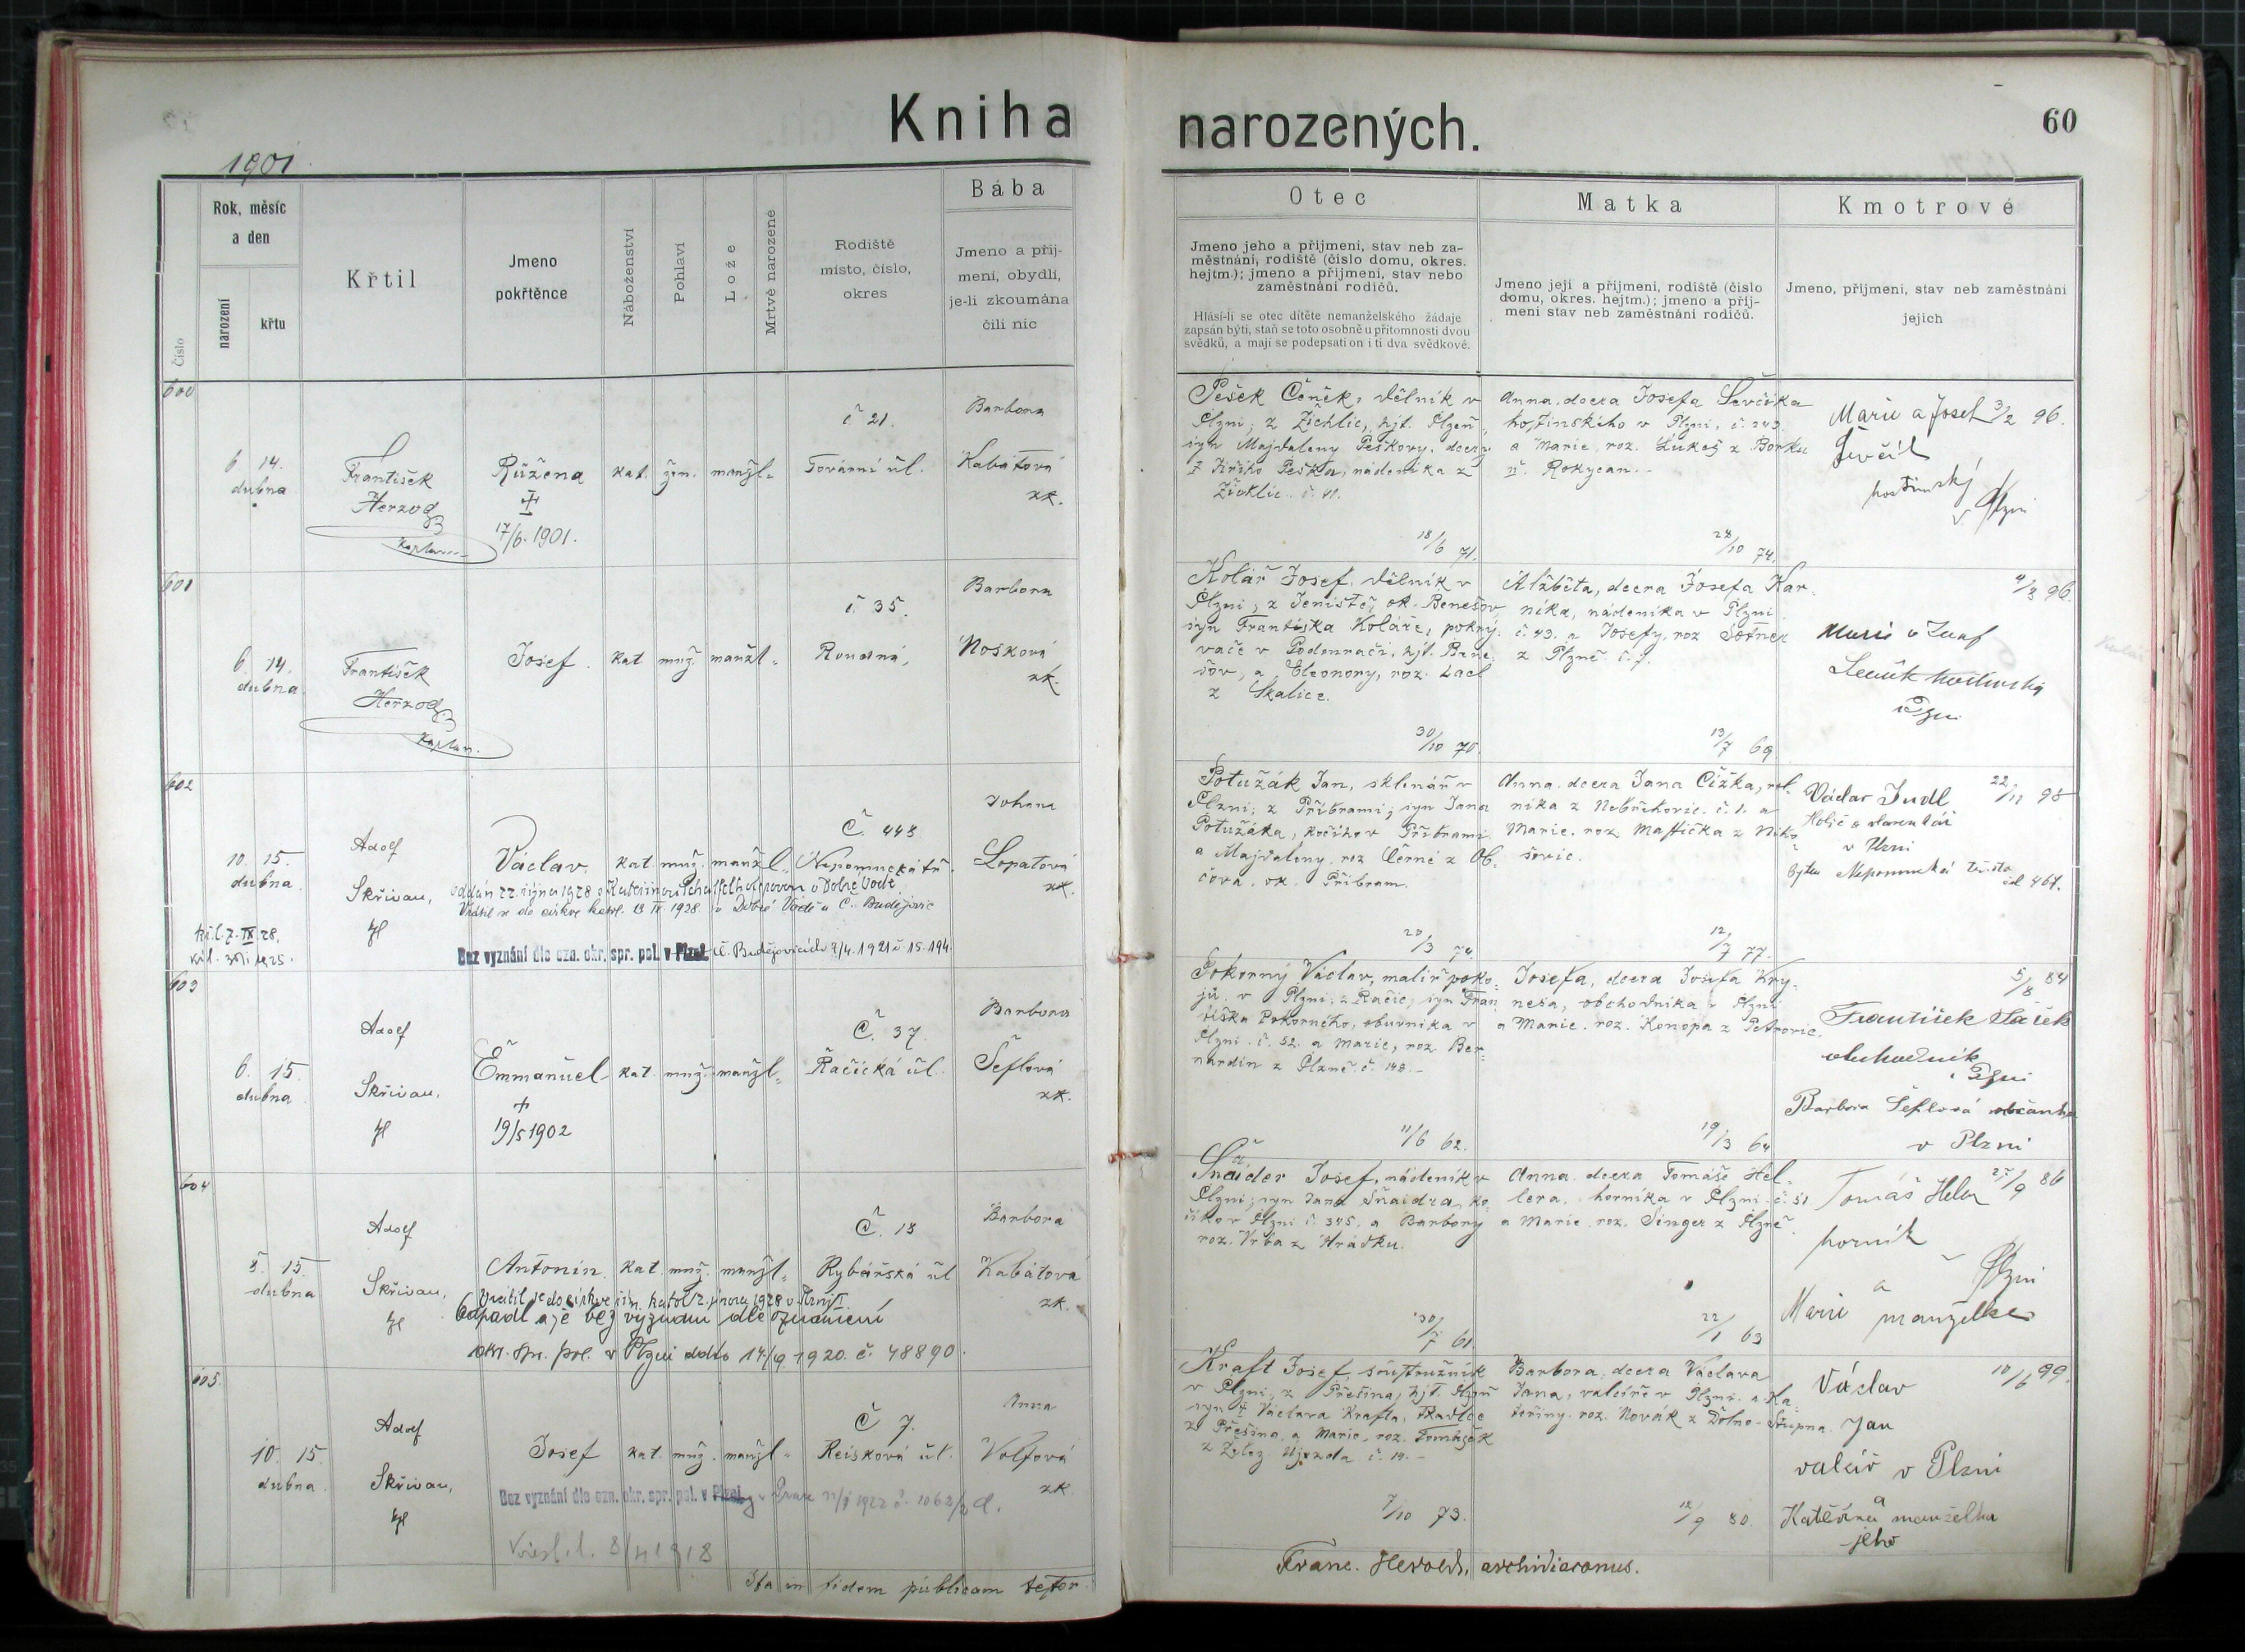 Kniha narozených.
60
1901.
Číslo
Rok, měsíc
a den
narození
křtu
Křtil
Jmeno
pokřtěnce
Náboženství
Pohlaví
Lože
Mrtvě narozené
Rodiště
místo, číslo,
okres
Bába
Jmeno a příj-
mení, obydlí,
je-li zkoumána
čili nic
Otec
Jmeno jeho a příjmení, stav neb za-
městnání, rodiště (číslo domu, okres.
hejtm.); jmeno a příjmení, stav nebo
zaměstnání rodičů.
Hlásí-li se otec dítěte nemanželského žádaje
zapsán býti, staň se toto osobně u přítomnosti dvou
svědků, a mají se podepsati on i ti dva svědkové.
Matka
Jmeno její a příjmení, rodiště (číslo
domu, okres. hejtm.); jmeno a příj-
mení stav neb zaměstnání rodičů.
Kmotrové
Jmeno, příjmení, stav neb zaměstnání
jejich
600
6 14.
dubna
František
Herzog
kaplan
Růžena
17/6. 1901.
kat. žen. manžl.
č 21.
Tovární ůl.
Barbora
Kabátová
zk.
Pešek Čeněk, dělník v
Plzni; z Žichlic, hjt. Plzeň
syn Majdaleny Peškovy, dcery
† Jiřího Peška, nádeníka z
Žichlic č. 41.
18/6 71.
Anna, dcera Josefa Ševčíka
hostinského v Plzni, č. 243
a Marie, roz. Lukeš z Borku
n. Rokycan.
28/10 74.
Marie a Josef 3/2 96.
Ševčík
hostinský
v Plzni
601
6. 14.
dubna
František
Herzog
kaplan.
Josef.
kat muž. manžl.
č 35.
Roudná,
Barbora
Nosková
zk.
Kolář Josef, dělník v
Plzni, z Jeniště, ok. Benešov
syn Františka Koláře, pokrý-
vače v Podounači, hjt. Bene-
šov, a Eleonory, roz. Lacl
z Skalice.
30/10 70.
Alžběta, dcera Josefa Kar-
níka, nádeníka v Plzni
č. 43. a Josefy, roz
z Plzně č. 7.
13/7 69
4/3 96.
Marie a Josef
hostinský
v Plzni
602
10. 15.
dubna
Adolf
Skřivan,
Václav.
kat muž. manžl.
Č. 448.
Nepomucká tř.
Johana
Lopatová
zk.
oddán 22. října 1928 s Kateřinou v Dobré Vodě
Vrátil se do církve katol. 13 IV. 1928. v Dobré Vodě u Č. Budějovic
Bez vyznání dle ozn. okr. spr. pol. v Plzni Č. Budějovicích 2/4. 1921 č. 15.194.
Potužák Jan, sklenář v
Plzni; z Příbrami, syn Jana
Potužáka, kočího v Příbrami
a Majdaleny, roz. Černé z Ob-
čova, ok. Příbram.
20/3 74.
Anna, dcera Jana Čížka, rol-
níka z Nebřehovic. č. 1. a
Marie. roz Mastička z
12/7 77.
Václav Judl 22/11 98
Holič a vlasenkář
v Plzni
bytem Nepomucká třída
čl 467.
603
6. 15.
dubna
Adolf
Skřivan,
Emmanuel
†
19/5 1902
kat. muž. manžl.
Č. 37.
Račická ůl.
Barbora
Šeflová
zk.
Pokorný Václav, malíř poko-
jů. v Plzni; z Račic, syn Fran-
tiška Pokorného, obuvníka v
Plzni. č. 52. a Marie, roz. Ber-
nardin z Plzně č. 148.
11/6 62.
Josefa, dcera Josefa Kry-
neša, obchodníka v Plzni
a Marie. roz. Konopa z Petrovic.
19/3 64
5/8 84
František
obchodník
v Plzni
Barbora Šeflová občanka
v Plzni
604
8. 15.
dubna
Adolf
Skřivan,
Antonín.
kat. muž. manžl.
Č. 13
Rybářská ůl
Barbora
Kabátová
zk.
Vrátil se do církve řím. katol 2. února 1928 v Plzni I.
Odpadl a je bez vyznání dle oznámení
okr. spr. pol. v Plzni ddto 14/9 1920. č. 48890.
Šnaider Josef, nádeník v
Plzni; syn Jana Šnaidra, ko-
číka v Plzni č. 345. a Barbory
roz. Vrba z Hrádku.
30/7 61.
Anna, dcera Tomáše Hel-
lera, horníka v Plzni č. 51
a Marie, roz. Singer z Plzně.
22/1 63
Tomáš Heler 27/9 86
horník
v Plzni
a
Marie manželka
605.
10. 15.
dubna.
Adolf
Skřivan,
Josef
kat. muž. manžl.
Č 7.
Reisková ůl.
Anna
Volfová
zk
Bez vyznání dle ozn. okr. spr. pol. v Plzni
8/4 1918
Kraft Josef, soustružník
v Plzni, z Přešína, hjt. Plzeň
syn † Václava Krafta, tkadlce
z Přešína, a Marie, roz. Tomášek
z Želez. Újezda č. 14.
7/10 73.
Barbora, dcera Václava
Jana, valcíře v Plzni. a Ka-
teřiny. roz. Novák z Dolno-Stupna.
12/9 80.
Václav 10/6 99.
Jan
valcíř v Plzni
a
Kateřina manželka
jeho
Ita in fidem publicam testor
Franc. Herold, archidiaconus.